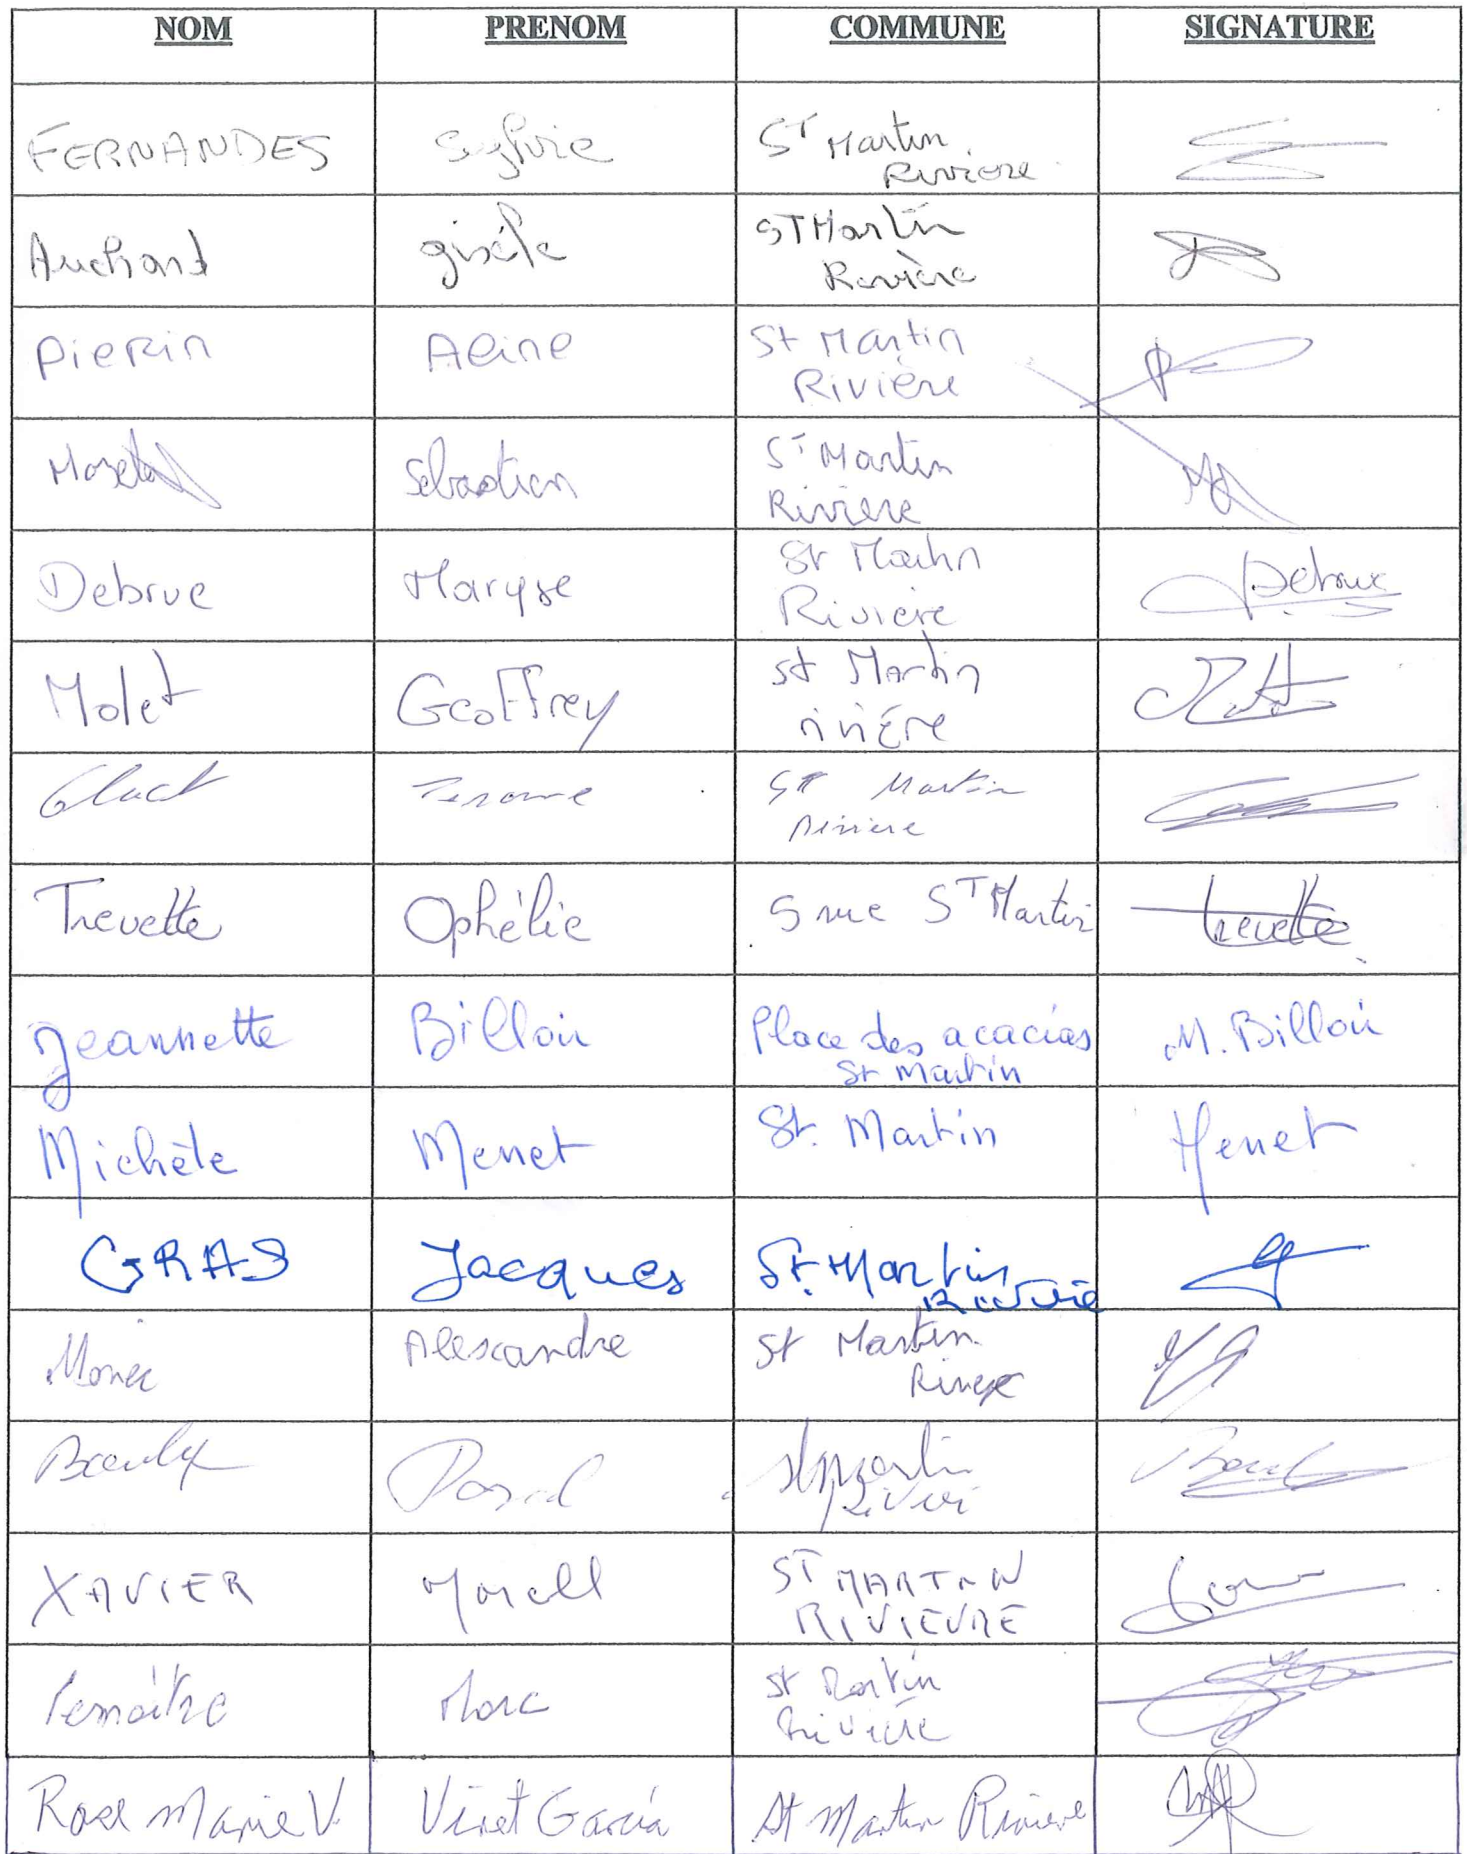 NOM PRENOM COMMUNE SIGNATURE
FERNANDES Sylvie ST Martin
Riviere
Auchard gisèle ST Martin
Rivière
PieRin Aline St Martin
Rivière
Sébastien ST Martin
Riviere
Debrue Maryse St Martin
Riviere
Molet Geoffrey St Martin
rivière
Jerome ST Martin
Riviere
Trevette Ophélie 5 rue ST Martin Trevette
Jeannette Billoir Place des acacias M. Billoir
St Martin
Michèle Menet St. Martin Menet
GRAS Jacques St. Martin
Alexandre St Martin
Pascal st martin
XAVIER Morell ST MARTIN
RIVIEVRE
Lemaître Marc St Martin
Rivière
Rose Marie V. Viret Garcia St Martin Riviere